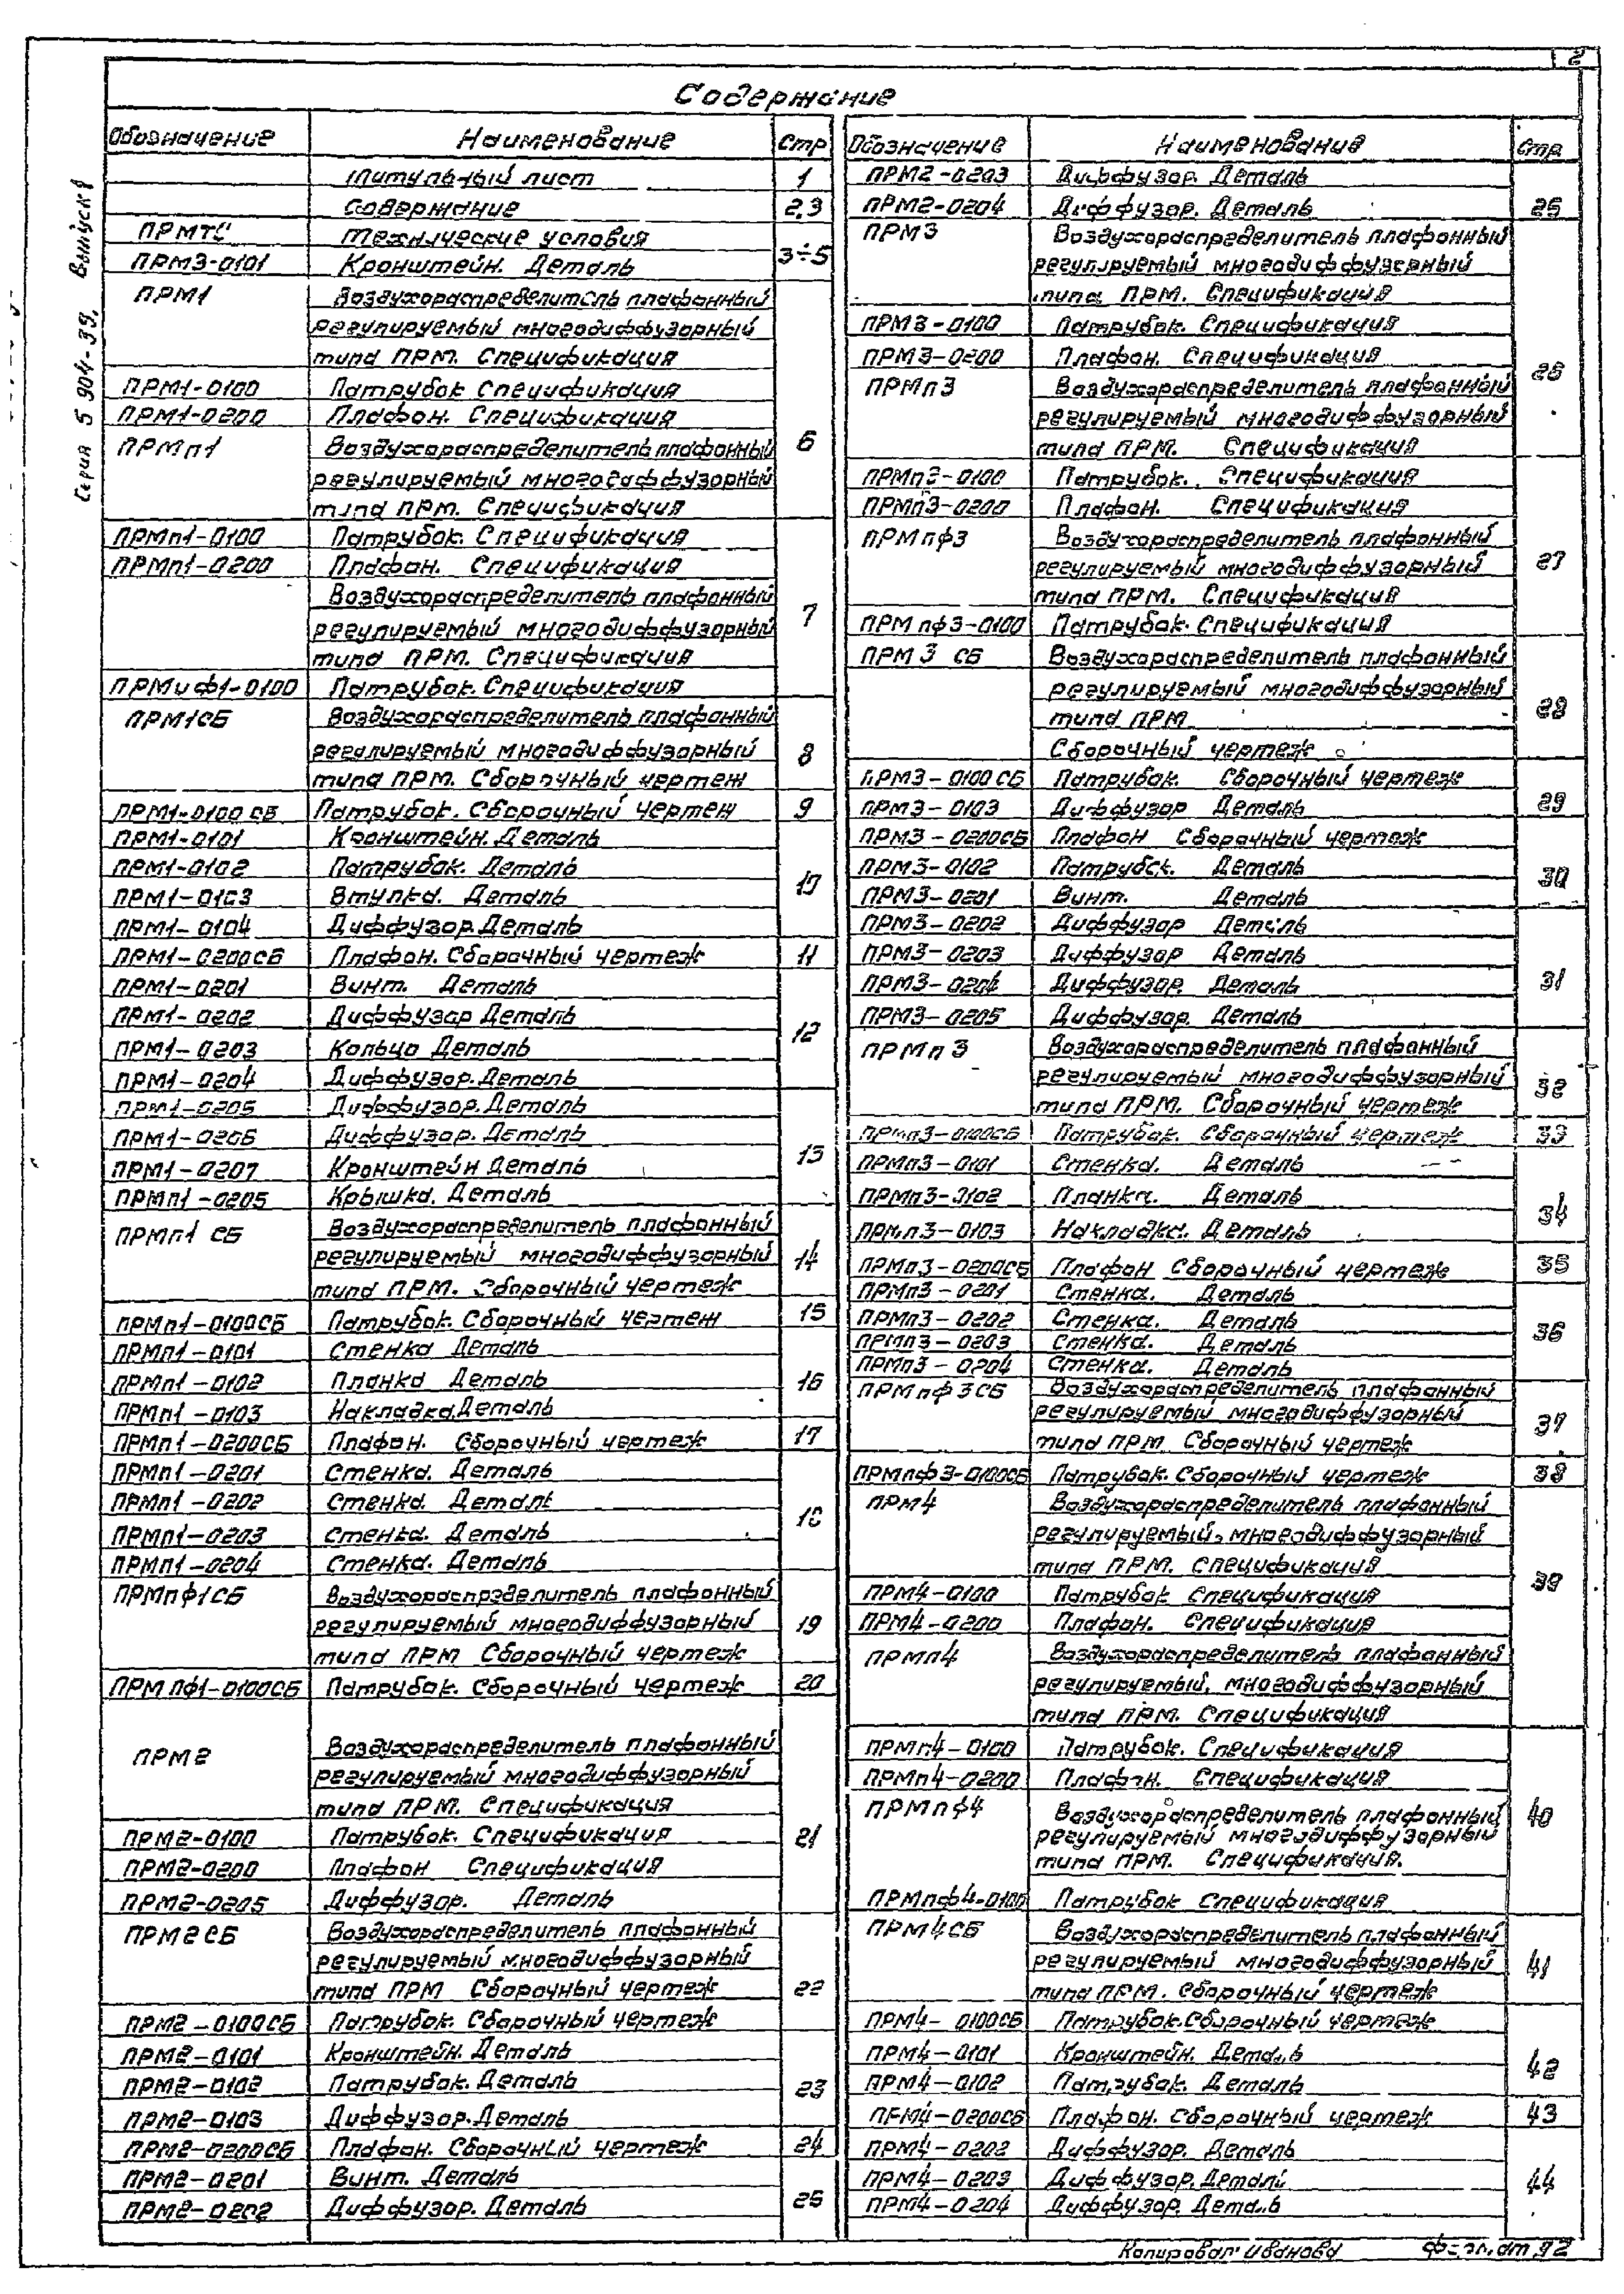 2
Содержание
Серия 5 904-39. Выпуск 1
Обозначение Наименование Стр
Титульный лист 1
Содержание 2,3
ПРМТУ Технические условия
3÷5
ПРМ3-0101 Кронштейн. Деталь
ПРМ1 Воздухораспределитель плафонный
регулируемый многодиффузорный
типа ПРМ. Спецификация
ПРМ1-0100 Патрубок Спецификация
ПРМ1-0200 Плафон. Спецификация
6
ПРМп1 Воздухораспределитель плафонный
регулируемый многодиффузорный
типа ПРМ. Спецификация
ПРМп1-0100 Патрубок. Спецификация
ПРМп1-0200 Плафон. Спецификация
Воздухораспределитель плафонный
7
регулируемый многодиффузорный
типа ПРМ. Спецификация
ПРМиф1-0100 Патрубок. Спецификация
ПРМ1СБ Воздухораспределитель плафонный
регулируемый многодиффузорный 8
типа ПРМ. Сборочный чертеж
ПРМ1-0100СБ Патрубок. Сборочный чертеж 9
ПРМ1-0101 Кронштейн. Деталь
ПРМ1-0102 Патрубок. Деталь
10
ПРМ1-0103 Втулка. Деталь
ПРМ1-0104 Диффузор. Деталь
ПРМ1-0200СБ Плафон. Сборочный чертеж 11
ПРМ1-0201 Винт. Деталь
ПРМ1-0202 Диффузор Деталь
12
ПРМ1-0203 Кольцо Деталь
ПРМ1-0204 Диффузор. Деталь
ПРМ1-0205 Диффузор. Деталь
ПРМ1-0206 Диффузор. Деталь
13
ПРМ1-0207 Кронштейн Деталь
ПРМп1-0205 Крышка. Деталь
ПРМп1 СБ Воздухораспределитель плафонный
регулируемый многодиффузорный 14
типа ПРМ. Сборочный чертеж
ПРМп1-0100СБ Патрубок. Сборочный чертеж 15
ПРМп1-0101 Стенка Деталь
ПРМп1-0102 Планка Деталь 16
ПРМп1-0103 Накладка. Деталь
ПРМп1-0200СБ Плафон. Сборочный чертеж 17
ПРМп1-0201 Стенка. Деталь
ПРМп1-0202 Стенка. Деталь
18
ПРМп1-0203 Стенка. Деталь
ПРМп1-0204 Стенка. Деталь
ПРМпф1СБ Воздухораспределитель плафонный
регулируемый многодиффузорный 19
типа ПРМ Сборочный чертеж
ПРМпф1-0100СБ Патрубок. Сборочный чертеж 20
ПРМ2 Воздухораспределитель плафонный
регулируемый многодиффузорный
типа ПРМ. Спецификация
ПРМ2-0100 Патрубок. Спецификация 21
ПРМ2-0200 Плафон Спецификация
ПРМ2-0205 Диффузор. Деталь
ПРМ2СБ Воздухораспределитель плафонный
регулируемый многодиффузорный
типа ПРМ Сборочный чертеж 22
ПРМ2-0100СБ Патрубок. Сборочный чертеж
ПРМ2-0101 Кронштейн. Деталь
ПРМ2-0102 Патрубок. Деталь 23
ПРМ2-0103 Диффузор. Деталь
ПРМ2-0200СБ Плафон. Сборочный чертеж 24
ПРМ2-0201 Винт. Деталь
25
ПРМ2-0202 Диффузор. Деталь
Обозначение Наименование Стр.
ПРМ2-0203 Диффузор. Деталь
ПРМ2-0204 Диффузор. Деталь 25
ПРМ3 Воздухораспределитель плафонный
регулируемый многодиффузорный
типа ПРМ. Спецификация
ПРМ3-0100 Патрубок. Спецификация
ПРМ3-0200 Плафон. Спецификация
26
ПРМп3 Воздухораспределитель плафонный
регулируемый многодиффузорный
типа ПРМ. Спецификация
ПРМп3-0100 Патрубок. Спецификация
ПРМп3-0200 Плафон. Спецификация
ПРМпф3 Воздухораспределитель плафонный
регулируемый многодиффузорный 27
типа ПРМ. Спецификация
ПРМпф3-0100 Патрубок. Спецификация
ПРМ3 СБ Воздухораспределитель плафонный
регулируемый многодиффузорный
типа ПРМ 28
Сборочный чертеж
ПРМ3-0100СБ Патрубок. Сборочный чертеж
ПРМ3-0103 Диффузор Деталь 29
ПРМ3-0200СБ Плафон Сборочный чертеж
ПРМ3-0102 Патрубок. Деталь
30
ПРМ3-0201 Винт. Деталь
ПРМ3-0202 Диффузор Деталь
ПРМ3-0203 Диффузор Деталь
ПРМ3-0204 Диффузор. Деталь 31
ПРМ3-0205 Диффузор. Деталь
ПРМп3 Воздухораспределитель плафонный
регулируемый многодиффузорный 32
типа ПРМ. Сборочный чертеж
ПРМп3-0100СБ Патрубок. Сборочный чертеж 33
ПРМп3-0101 Стенка. Деталь
ПРМп3-0102 Планка. Деталь
34
ПРМп3-0103 Накладка. Деталь
ПРМп3-0200СБ Плафон Сборочный чертеж 35
ПРМп3-0201 Стенка. Деталь
ПРМп3-0202 Стенка. Деталь
36
ПРМп3-0203 Стенка. Деталь
ПРМп3-0204 Стенка. Деталь
ПРМпф3СБ Воздухораспределитель плафонный
регулируемый многодиффузорный 37
типа ПРМ. Сборочный чертеж
ПРМпф3-0100СБ Патрубок. Сборочный чертеж 38
ПРМ4 Воздухораспределитель плафонный
регулируемый, многодиффузорный
типа ПРМ. Спецификация
39
ПРМ4-0100 Патрубок Спецификация
ПРМ4-0200 Плафон. Спецификация
ПРМп4 Воздухораспределитель плафонный
регулируемый, многодиффузорный
типа ПРМ. Спецификация
ПРМп4-0100 Патрубок. Спецификация
ПРМп4-0200 Плафон. Спецификация
ПРМпф4 Воздухораспределитель плафонный 40
регулируемый многодиффузорный
типа ПРМ. Спецификация.
ПРМпф4-0100 Патрубок Спецификация
ПРМ4СБ Воздухораспределитель плафонный
регулируемый многодиффузорный 41
типа ПРМ. Сборочный чертеж
ПРМ4-0100СБ Патрубок. Сборочный чертеж
ПРМ4-0101 Кронштейн. Деталь
42
ПРМ4-0102 Патрубок. Деталь
ПРМ4-0200СБ Плафон. Сборочный чертеж 43
ПРМ4-0202 Диффузор. Деталь
ПРМ4-0203 Диффузор. Деталь 44
ПРМ4-0204 Диффузор. Деталь
Копировал: Иванова